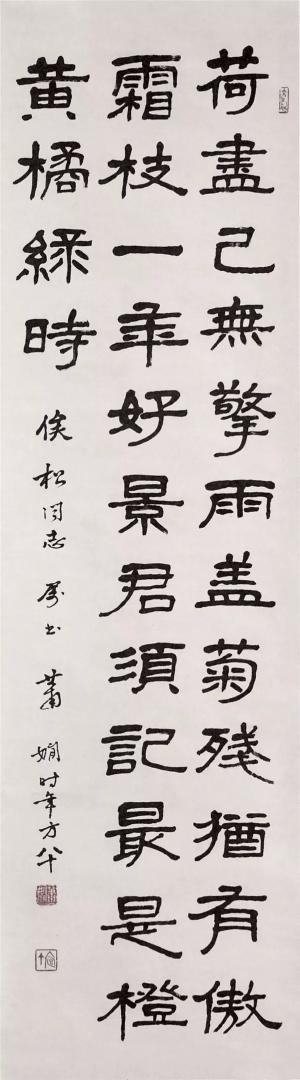 荷盡已無擎雨盖菊殘猶有傲
霜枝一年好景君須記最是橙
黄橘緑時
侯松同志属书 萧嫻时年方八十